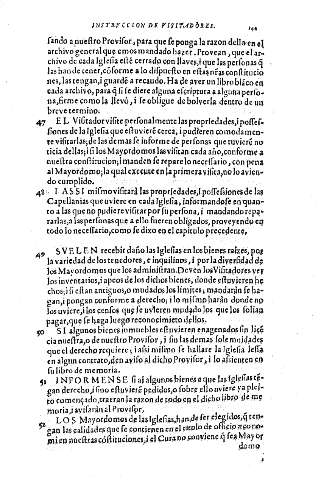 INSTRVCCION DE VISITADORES.
sando a nuestro Provisor, para que se ponga la razon dello en el
archivo general que emos mandado hazer. Provean, que el ar-
chivo de cada Iglesia esté cerrado con llaves, i que las personas q̃
las han de tener, cõforme a lo dispuesto en estas nr̃as constitucio
nes, las tengan, i guardẽ a recaudo. Ha de aver un libro blãco en
cada archivo, para q̃ si se diere alguna escriptura a alguna perso-
na, firme como la llevó, i se obligue de bolverla dentro de un
breve termino.
47 EL Visitador visite personalmente las propriedades, i posses-
siones de la Iglesia que estuvierẽ cerca, i pudieren comodamẽ-
te visitarlas; de las demas se informe de personas que tuvierẽ no
ticia dellas; i si los Mayordomos las visitan cada año, conforme a
nuestra constitucion; i manden se repare lo necessario, con pena
al Mayordomo; la qual execute en la primera visita, no lo avien-
do cumplido.
48 I ASSI mismo visitará las propriedades, i possessiones de las
Capellanias que uviere en cada Iglesia, informandose en quan-
to a las que no pudiere visitar por su persona, i mandando repa-
rarlas, a las personas que a ello fueren obligados, proveyendo en
todo lo necessario, como se dixo en el capitulo precedente,
49 SVELEN recebir daño las Iglesias en los bienes raizes, por
la variedad de los tenedores, e inquilinos, i por la diversidad de
los Mayordomos que los administran. Deven los Visitadores ver
los inventarios, i apeos de los dichos bienes, donde estuvieren he
chos; i si estan antiguos, o mudados los limites, mandarán se ha-
gan, i pongan conforme a derecho; i lo mismo harán donde no
los uviere, i los censos que se uvieren mudado los que los solian
pagar, que se haga luego reconocimiẽto dellos.
50 SI algunos bienes inmuebles estuvieren enagenados sin licẽ
cia nuestra, o de nuestro Provisor, i sin las demas solenidades
que el derecho requiere; i assi mismo se hallare la Iglesia lessa
en algun contrato, den aviso al dicho Provisor, i lo assienten en
su libro de memoria.
51 INFORMENSE si ai algunos bienes a que las Iglesias tẽ-
gan derecho, i si no estuviere pedidos, o sobre ello uviere ya pley-
to começado, traeran la razon de todo en el dicho libro de me
moria, i avisarán al Provisor.
52 LOS Mayordomos de las Iglesias, han de ser elegidos, q̃ ten-
gan las calidades que se contienen en el titulo de officio
en nuestras cõstituciones, i el Cura no conviene q̃ sea Mayor
domo